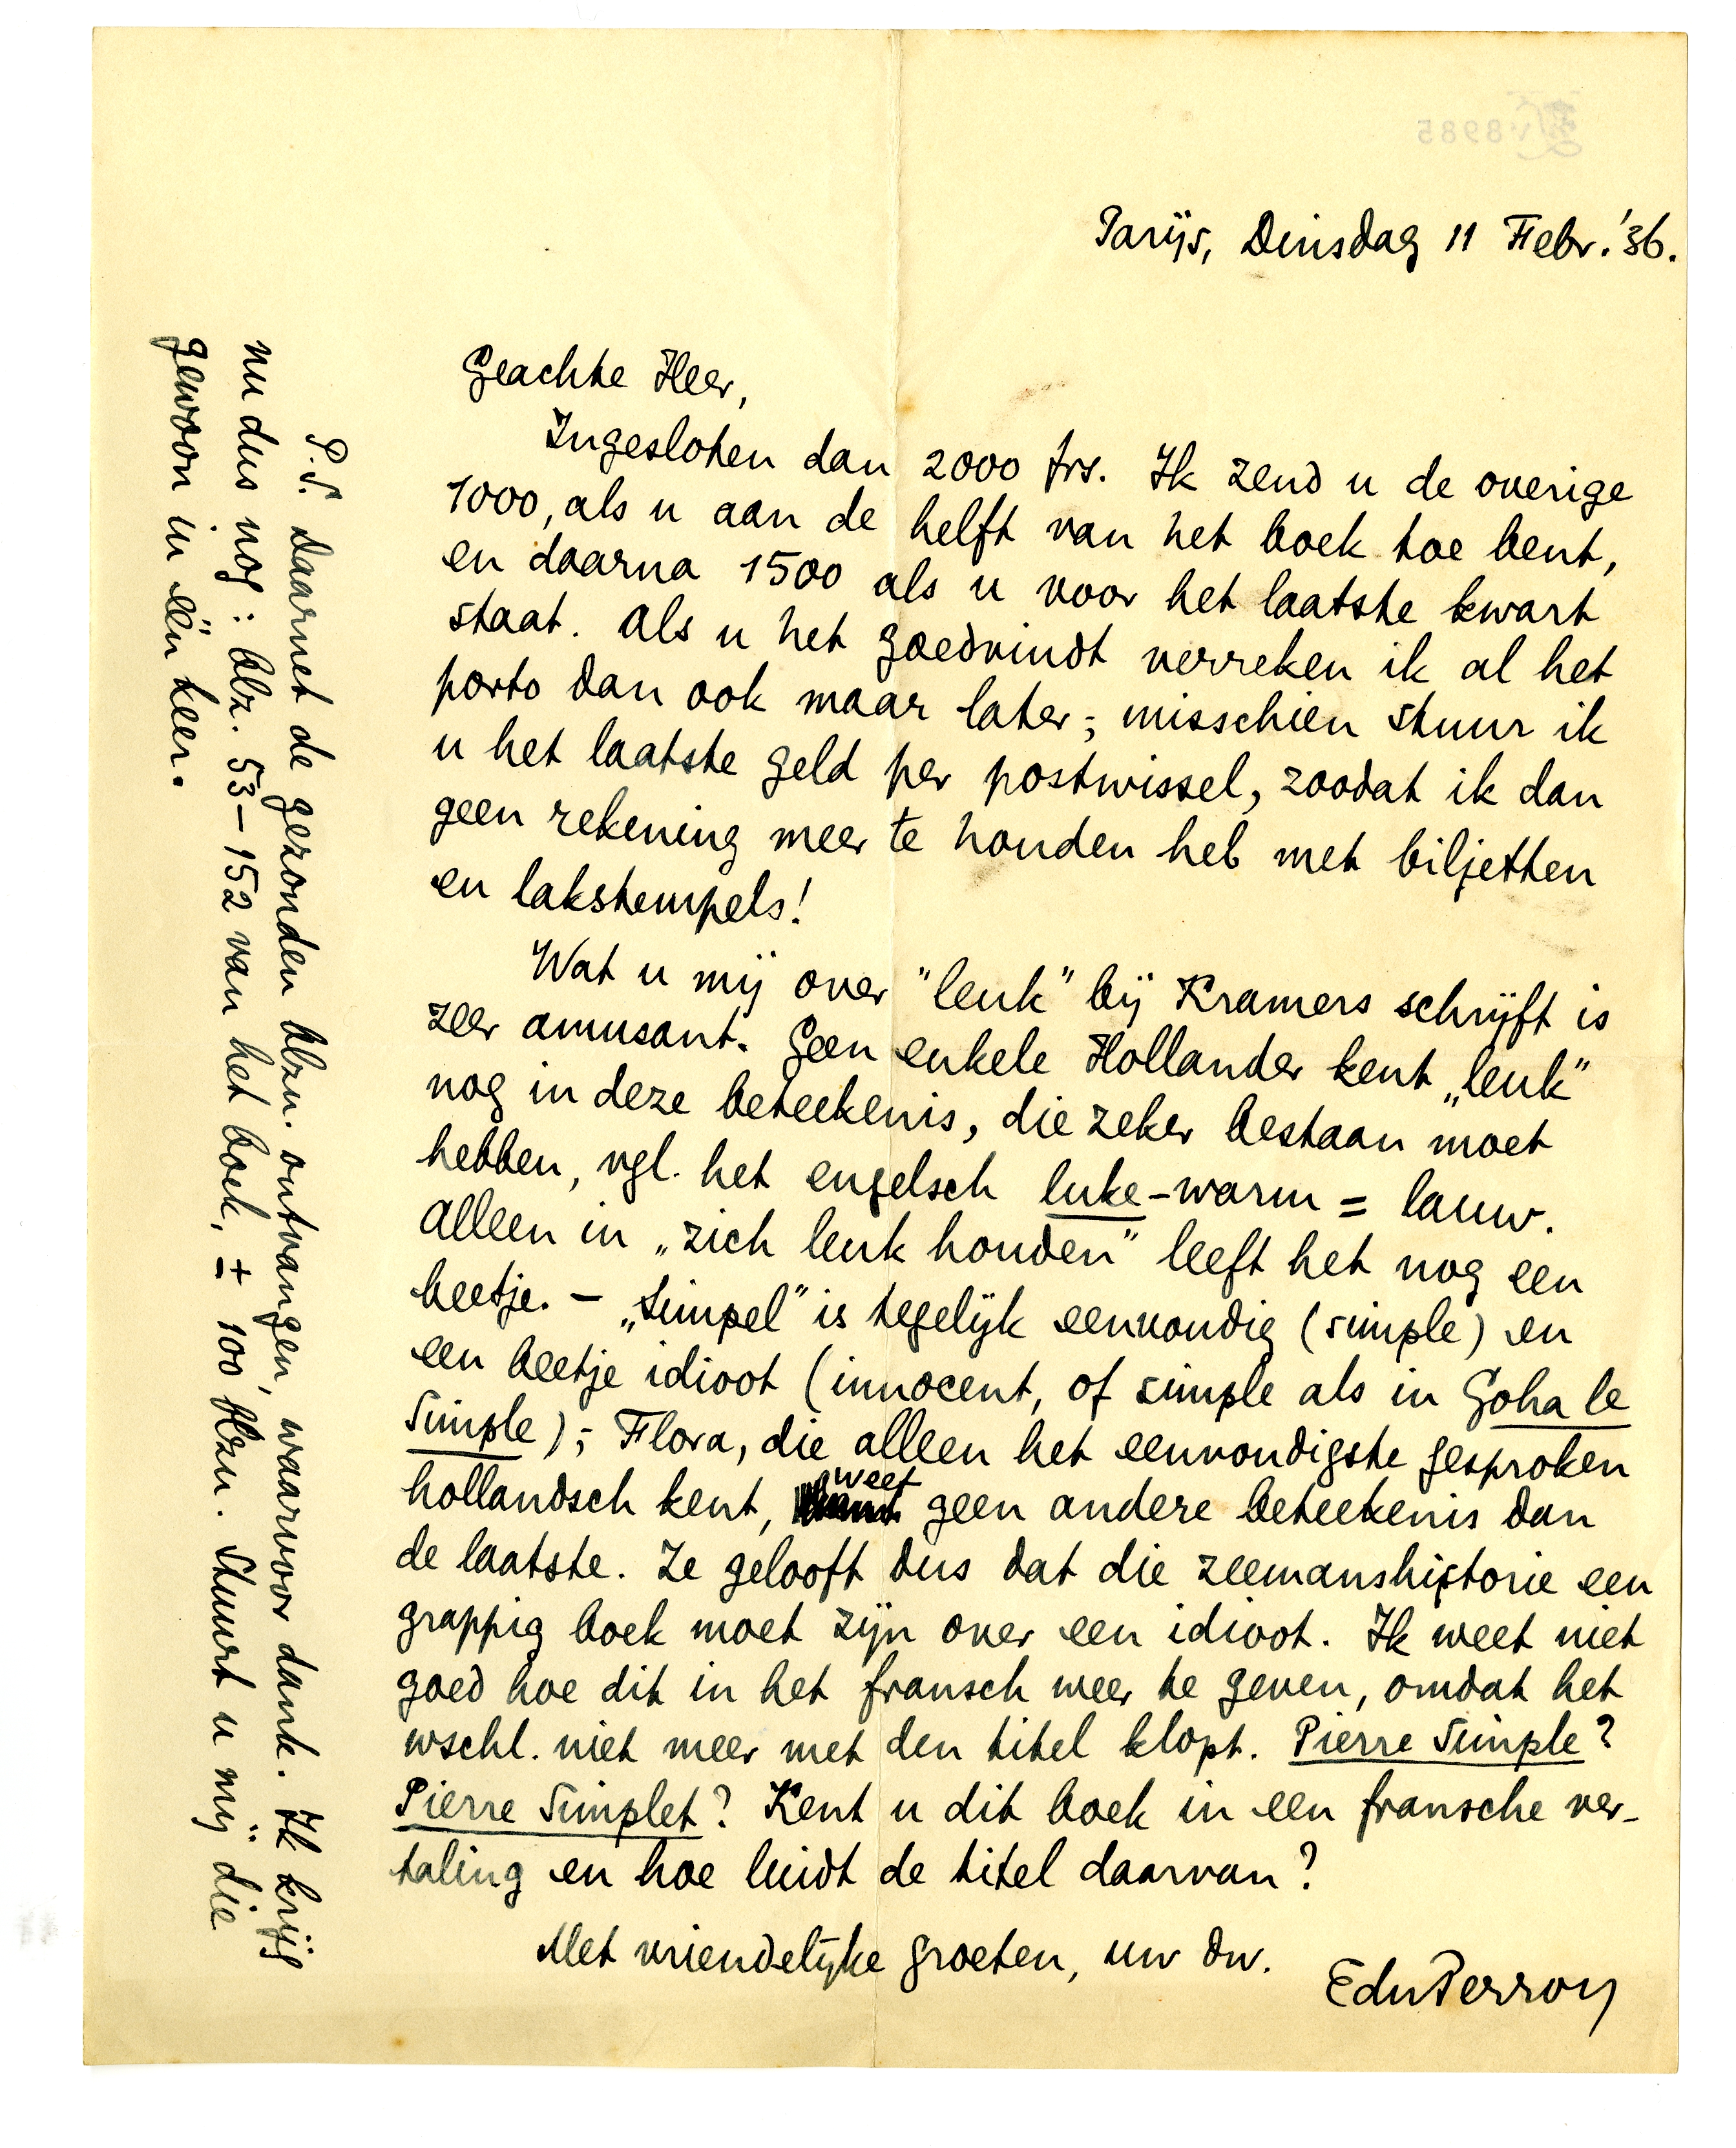 Parijs, Dinsdag 11 Febr. '36.
Geachte Heer,
Ingesloten dan 2000 frs. Ik zend u de overige
1000, als u aan de helft van het boek toe bent,
en daarna 1500 als u voor het laatste kwart
staat. Als u het goedvindt verreken ik al het
porto dan ook maar later; misschien stuur ik
u het laatste geld per postwissel, zoodat ik dan
geen rekening meer te houden heb met biljetten
en lakstempels!
Wat u mij over "leuk" bij Kramers schrijft is
zeer amusant. Geen enkele Hollander kent „leuk"
nog in deze beteekenis, die zeker bestaan moet
hebben, vgl. het engelsch luke-warm = lauw.
Alleen in „zich leuk houden" leeft het nog een
beetje. – „Simpel" is tegelijk eenvoudig (simple) en
een beetje idioot (innocent, of simple als in Goha le
Simple); Flora, die alleen het eenvoudigste gesproken
hollandsch kent, weet geen andere beteekenis dan
de laatste. Ze gelooft dus dat die zeemanshistorie een
grappig boek moet zijn over een idioot. Ik weet niet
goed hoe dit in het fransch weer te geven, omdat het
wschl. niet meer met den titel klopt. Pierre Simple?
Pierre Simplet? Kent u dit boek in een fransche ver-
taling en hoe luidt de titel daarvan?
Met vriendelijke groeten, uw dw.
EduPerron
P.S. Daarnet de gezonden blzn. ontvangen, waarvoor dank. Ik krijg
nu dus nog: blz. 53–152 van het boek, ± 100 blzn. Stuurt u mij die
gewoon in één keer.
8985